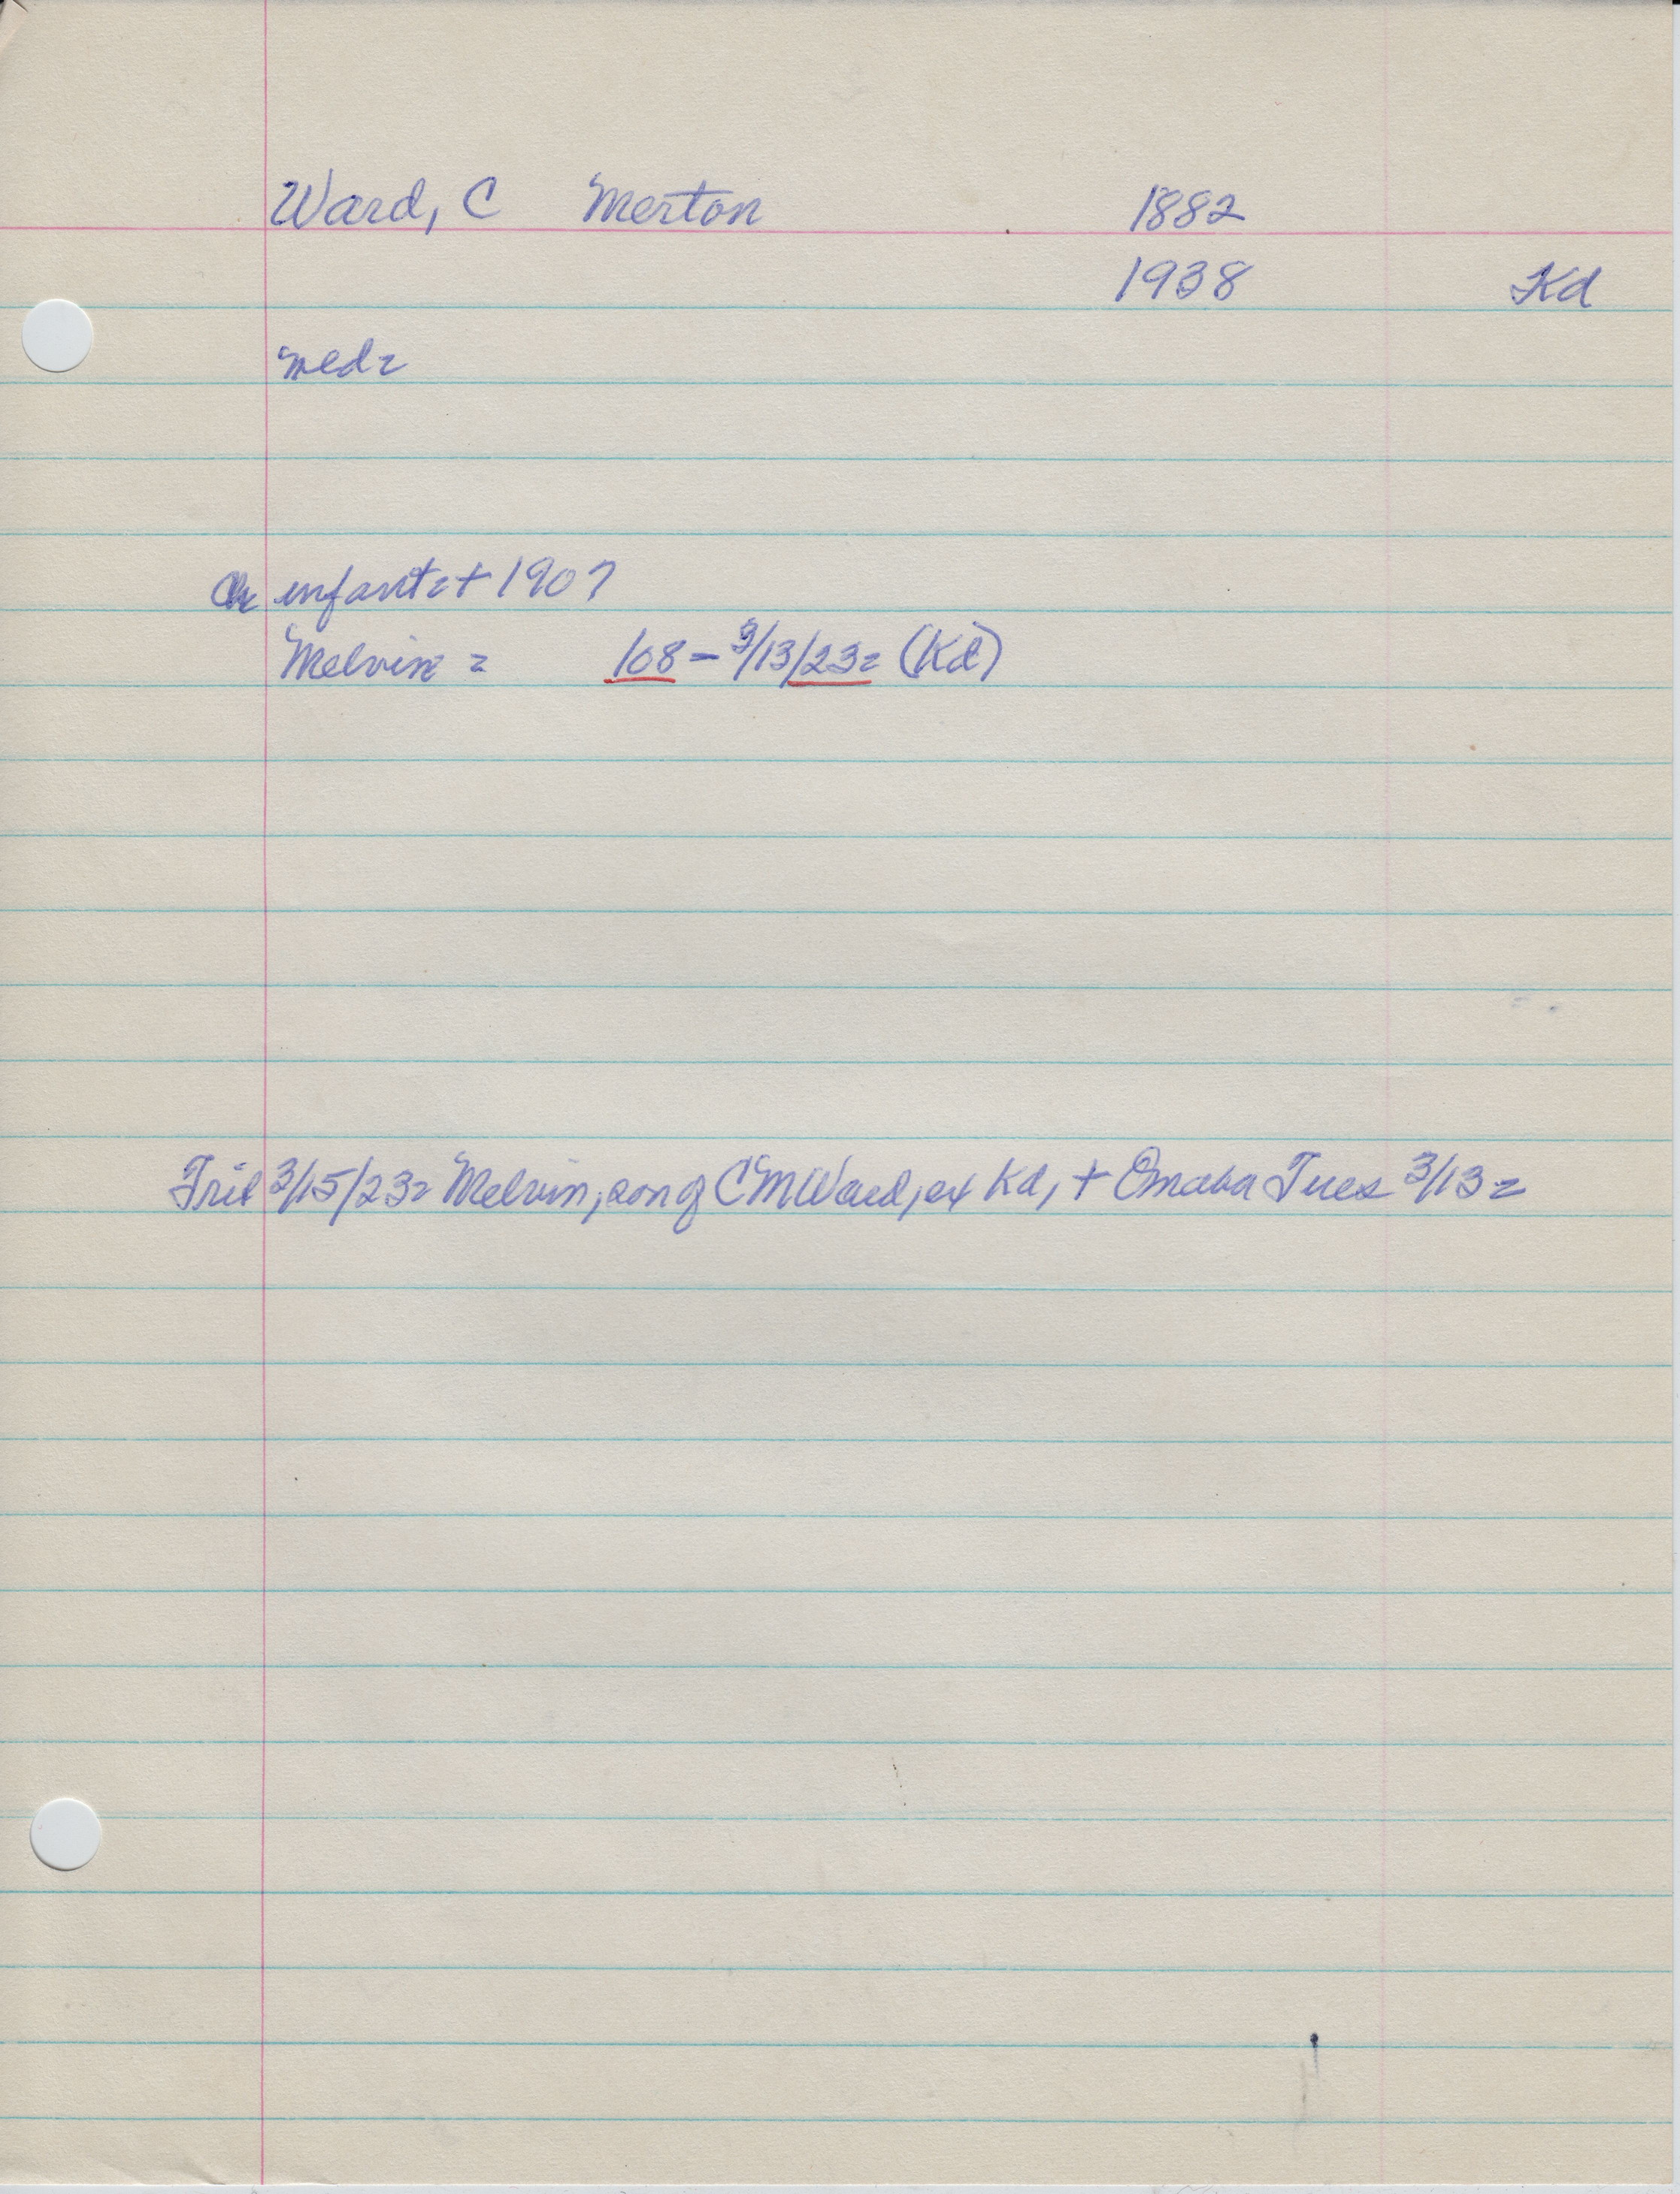 Ward, C Merton 1882
1938 Kd
med=
Ch infant=+ 1907
Melvin = 108 - 3/13/23= (Kd)
Trib 3/15/23= Melvin, son of CM Ward, ex Kd, + Omaha Tues 3/13=